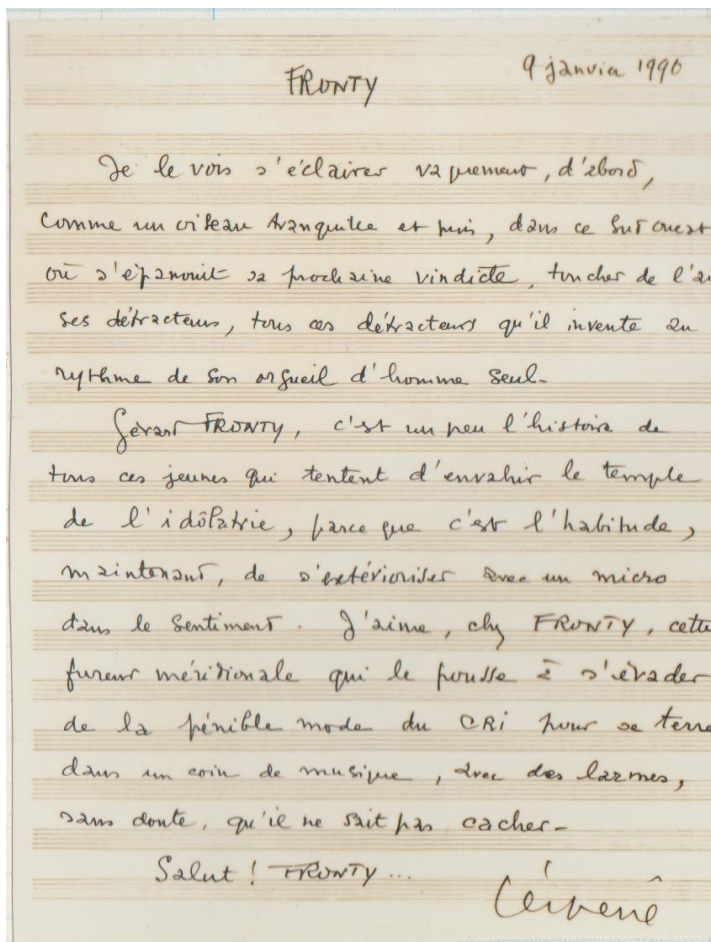 9 janvier 1990
FRONTY
Je le vois s'éclairer vaguement, d'abord,
comme un oiseau tranquille et puis, dans ce Sud ouest
où s'épanouit sa prochaine vindicte, toucher de l'a
ses détracteurs, tous ces détracteurs qu'il invente au
rythme de son orgueil d'homme seul-
Gérard FRONTY, c'est un peu l'histoire de
tous ces jeunes qui tentent d'envahir le temple
de l'idôlatrie, parce que c'est l'habitude,
maintenant, de s'extérioriser avec un micro
dans le sentiment. J'aime, chez FRONTY, cette
fureur méridionale qui le pousse à s'évader
de la pénible mode du CRi pour se terre
dans un coin de musique, avec des larmes,
sans doute, qu'il ne sait pas cacher-
Salut ! FRONTY...